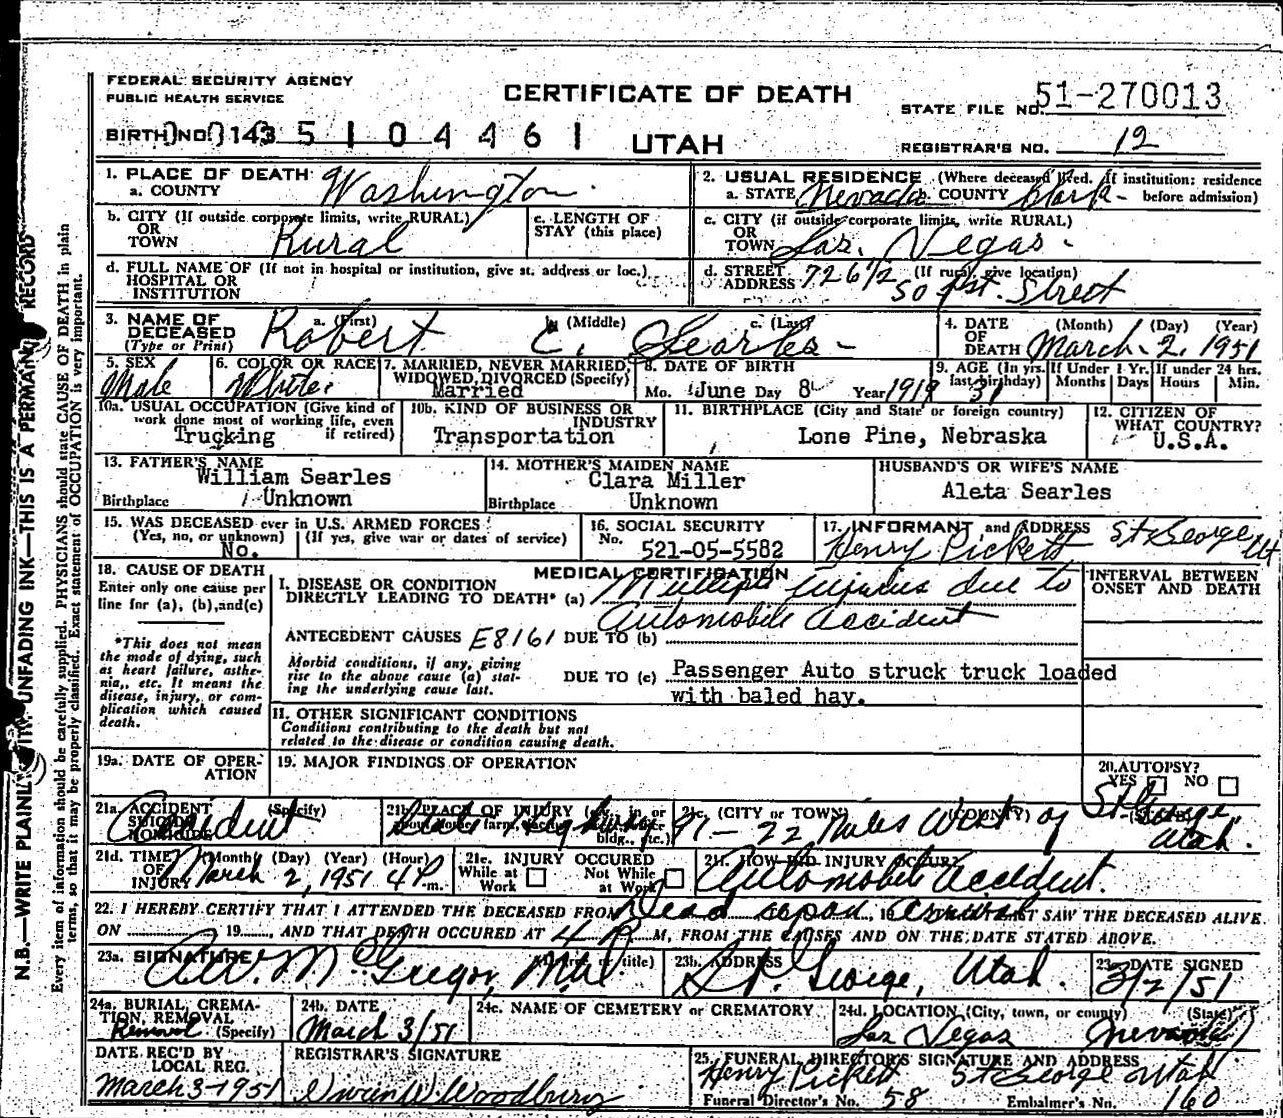 FEDERAL SECURITY AGENCY
PUBLIC HEALTH SERVICE
CERTIFICATE OF DEATH
STATE FILE NO. 51-270013
BIRTH NO. 143 5 1 0 4 4 6 1
UTAH
REGISTRAR'S NO. 12
N.B.—WRITE PLAINLY UNFADING INK—THIS IS A PERMANENT RECORD
Every item of information should be carefully supplied. PHYSICIANS should state CAUSE OF DEATH in plain
terms, so that it may be properly classified. Exact statement of OCCUPATION is very important.
1. PLACE OF DEATH
a. COUNTY Washington
2. USUAL RESIDENCE (Where deceased lived. If institution: residence
a. STATE Nevada b. COUNTY Clark before admission)
b. CITY (If outside corporate limits, write RURAL)
OR
TOWN Rural
c. LENGTH OF
STAY (this place)
c. CITY (if outside corporate limits, write RURAL)
OR
TOWN Las Vegas
d. FULL NAME OF (If not in hospital or institution, give st. address or loc.)
HOSPITAL OR
INSTITUTION
d. STREET (If rural, give location)
ADDRESS 726 1/2 So 1st. Street
3. NAME OF
DECEASED
(Type or Print)
a. (First) b. (Middle) c. (Last)
Robert C. Searles
4. DATE (Month) (Day) (Year)
OF
DEATH March 2, 1951
5. SEX
Male
6. COLOR OR RACE
White
7. MARRIED, NEVER MARRIED,
WIDOWED, DIVORCED (Specify)
Married
8. DATE OF BIRTH
Mo. June Day 8 Year 1919
9. AGE (In yrs. last birthday) 31
If Under 1 Yr. Months Days
If under 24 hrs. Hours Min.
10a. USUAL OCCUPATION (Give kind of
work done most of working life, even
if retired)
Trucking
10b. KIND OF BUSINESS OR
INDUSTRY
Transportation
11. BIRTHPLACE (City and State or foreign country)
Lone Pine, Nebraska
12. CITIZEN OF
WHAT COUNTRY?
U.S.A.
13. FATHER'S NAME
William Searles
Birthplace Unknown
14. MOTHER'S MAIDEN NAME
Clara Miller
Birthplace Unknown
HUSBAND'S OR WIFE'S NAME
Aleta Searles
15. WAS DECEASED ever in U.S. ARMED FORCES?
(Yes, no, or unknown) (If yes, give war or dates of service)
No.
16. SOCIAL SECURITY
No. 521-05-5582
17. INFORMANT and ADDRESS
Henry Pickett St George Ut
18. CAUSE OF DEATH
Enter only one cause per
line for (a), (b), and (c)
*This does not mean
the mode of dying, such
as heart failure, asthe-
nia, etc. It means the
disease, injury, or com-
plication which caused
death.
MEDICAL CERTIFICATION
INTERVAL BETWEEN
ONSET AND DEATH
I. DISEASE OR CONDITION
DIRECTLY LEADING TO DEATH* (a) Multiple injuries due to
Automobile accident
ANTECEDENT CAUSES E8161 DUE TO (b)
Morbid conditions, if any, giving
rise to the above cause (a) stat-
ing the underlying cause last.
DUE TO (c) Passenger Auto struck truck loaded
with baled hay.
II. OTHER SIGNIFICANT CONDITIONS
Conditions contributing to the death but not
related to the disease or condition causing death.
19a. DATE OF OPER-
ATION
19. MAJOR FINDINGS OF OPERATION
20. AUTOPSY?
YES NO
21a. ACCIDENT (Specify)
SUICIDE
HOMICIDE
Accident
21b. PLACE OF INJURY
State Highway 91 - 22 Miles West of St George,
Utah.
21c. (CITY or TOWN) (COUNTY) (STATE)
21d. TIME (Month) (Day) (Year) (Hour)
OF
INJURY March 2, 1951 4 P m.
21e. INJURY OCCURED
While at Work Not While at Work
21f. HOW DID INJURY OCCUR?
Automobile accident.
22. I HEREBY CERTIFY THAT I ATTENDED THE DECEASED FROM Dead upon arrival LAST SAW THE DECEASED ALIVE
ON 19 , AND THAT DEATH OCCURED AT 4 P. M, FROM THE CAUSES AND ON THE DATE STATED ABOVE.
23a. SIGNATURE (Degree or title)
McGregor, M.D.
23b. ADDRESS
St. George, Utah.
23c. DATE SIGNED
3/2/51
24a. BURIAL, CREMA-
TION, REMOVAL
Removal (Specify)
24b. DATE
March 3/51
24c. NAME OF CEMETERY or CREMATORY
24d. LOCATION (City, town, or county) (State)
Las Vegas Nevada
DATE REC'D BY
LOCAL REG.
March 3-1951
REGISTRAR'S SIGNATURE
Woodbury
25. FUNERAL DIRECTOR'S SIGNATURE AND ADDRESS
Henry Pickett St George Utah
Funeral Director's No. 58 Embalmer's No. 160